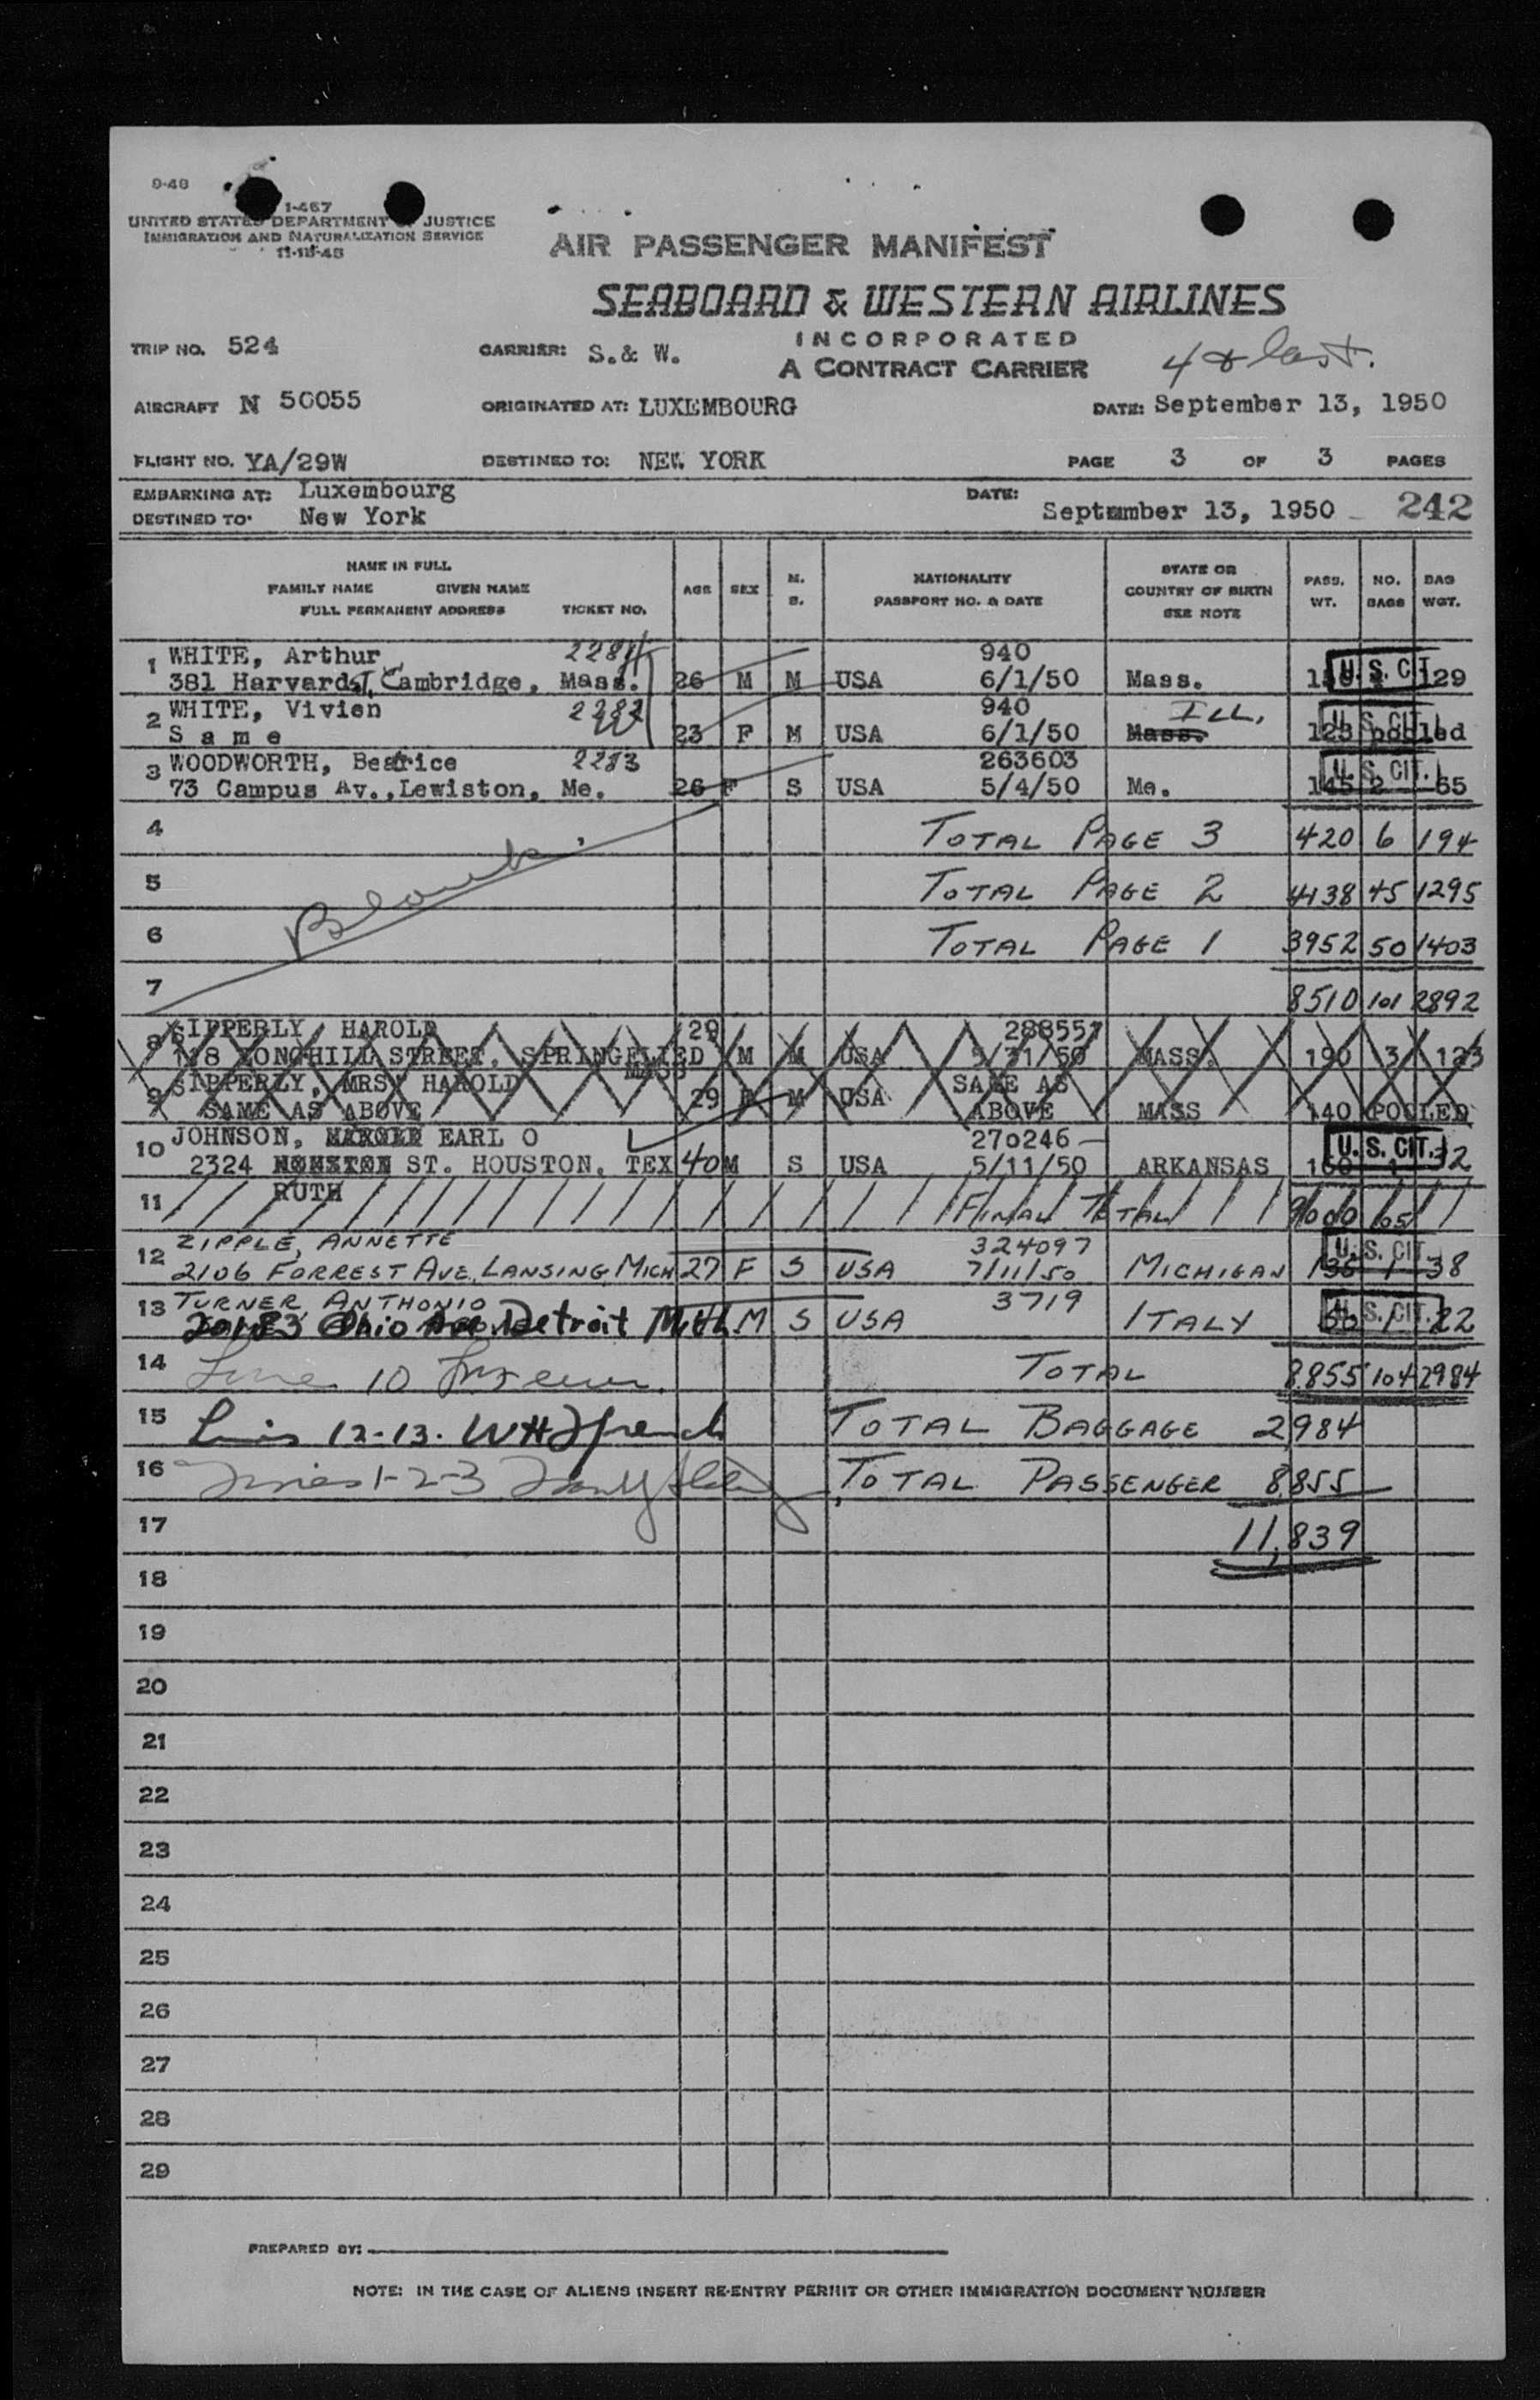 9-48
1-467
UNITED STATES DEPARTMENT OF JUSTICE
IMMIGRATION AND NATURALIZATION SERVICE
11-18-48
AIR PASSENGER MANIFEST
SEABOARD & WESTERN AIRLINES
INCORPORATED
A CONTRACT CARRIER
4 & last.
TRIP NO. 524 CARRIER: S. & W.
AIRCRAFT N 50055 ORIGINATED AT: LUXEMBOURG DATE: September 13, 1950
FLIGHT NO. YA/29W DESTINED TO: NEW YORK PAGE 3 OF 3 PAGES
EMBARKING AT: Luxembourg DATE:
DESTINED TO: New York September 13, 1950 242
NAME IN FULL
FAMILY NAME GIVEN NAME
FULL PERMANENT ADDRESS TICKET NO. AGE SEX M. S. NATIONALITY PASSPORT NO. & DATE STATE OR COUNTRY OF BIRTH SEE NOTE PASS. WT. NO. BAGS BAG WGT.
1 WHITE, Arthur 2281 940
381 Harvard St, Cambridge, Mass. 26 M M USA 6/1/50 Mass. U.S. CIT. 129
2 WHITE, Vivien 2282 940 ILL.
Same 23 F M USA 6/1/50 Mass. 123 pooled U.S. CIT.
3 WOODWORTH, Beatrice 2283 263603
73 Campus Av., Lewiston, Me. 26 F S USA 5/4/50 Me. 145 2 65 U.S. CIT.
4 TOTAL PAGE 3 420 6 194
Blank
5 TOTAL PAGE 2 4138 45 1295
6 TOTAL PAGE 1 3952 50 1403
7 8510 101 2892
8 SIPPERLY, HAROLD 29 288557
118 LONGHILL STREET, SPRINGFLIED M M USA 5/31/50 MASS. 190 3 123
MASS
9 SIPPERLY, MRS HAROLD SAME AS
SAME AS ABOVE 29 F M USA ABOVE MASS 140 POOLED
10 JOHNSON, EARL O 270246
2324 ST. HOUSTON, TEX 40 M S USA 5/11/50 ARKANSAS 160 1 32 U.S. CIT.
RUTH
11 FINAL TOTAL 9000 105
12 ZIPPLE, ANNETTE 324097
2106 FORREST AVE, LANSING, MICH 27 F S USA 7/11/50 MICHIGAN 135 1 38 U.S. CIT.
13 TURNER, ANTHONIO 3719
20183 Ohio Ave. Detroit Mich. M S USA ITALY 1 22 U.S. CIT.
14 Line 10 TOTAL 8855 104 2984
15 Lines 12-13. WH French TOTAL BAGGAGE 2984
16 Lines 1-2-3 TOTAL PASSENGER 8855
17 11,839
18
19
20
21
22
23
24
25
26
27
28
29
PREPARED BY:
NOTE: IN THE CASE OF ALIENS INSERT RE-ENTRY PERMIT OR OTHER IMMIGRATION DOCUMENT NUMBER